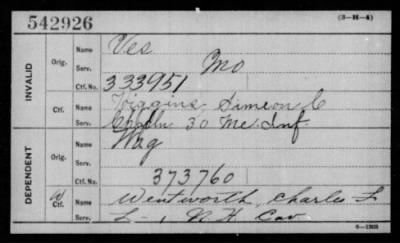 542926 (3-H-4)
INVALID
Orig. Name Ves
Serv. Mo
Ctf. No. 333951
Ctf. Name Higgins Simeon C
Serv. Chapln 30 Me. Inf
DEPENDENT
Orig. Name Wag
Serv.
Ctf. No. 373760
W Ctf. Name Wentworth, Charles F
Serv. L-1, N H Cav